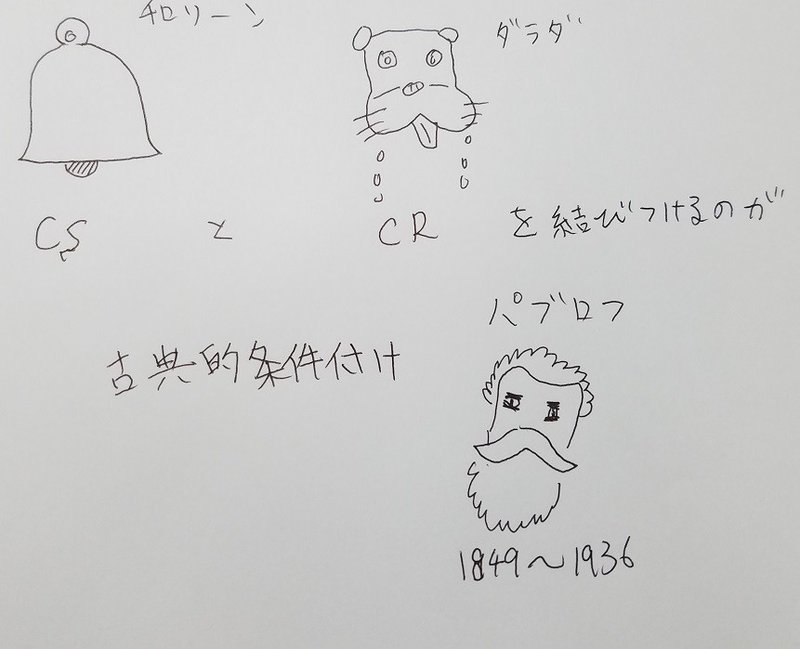 チロリーン
ダラダ
CS と CR を結びつけるのが
パブロフ
古典的条件付け
1849～1936